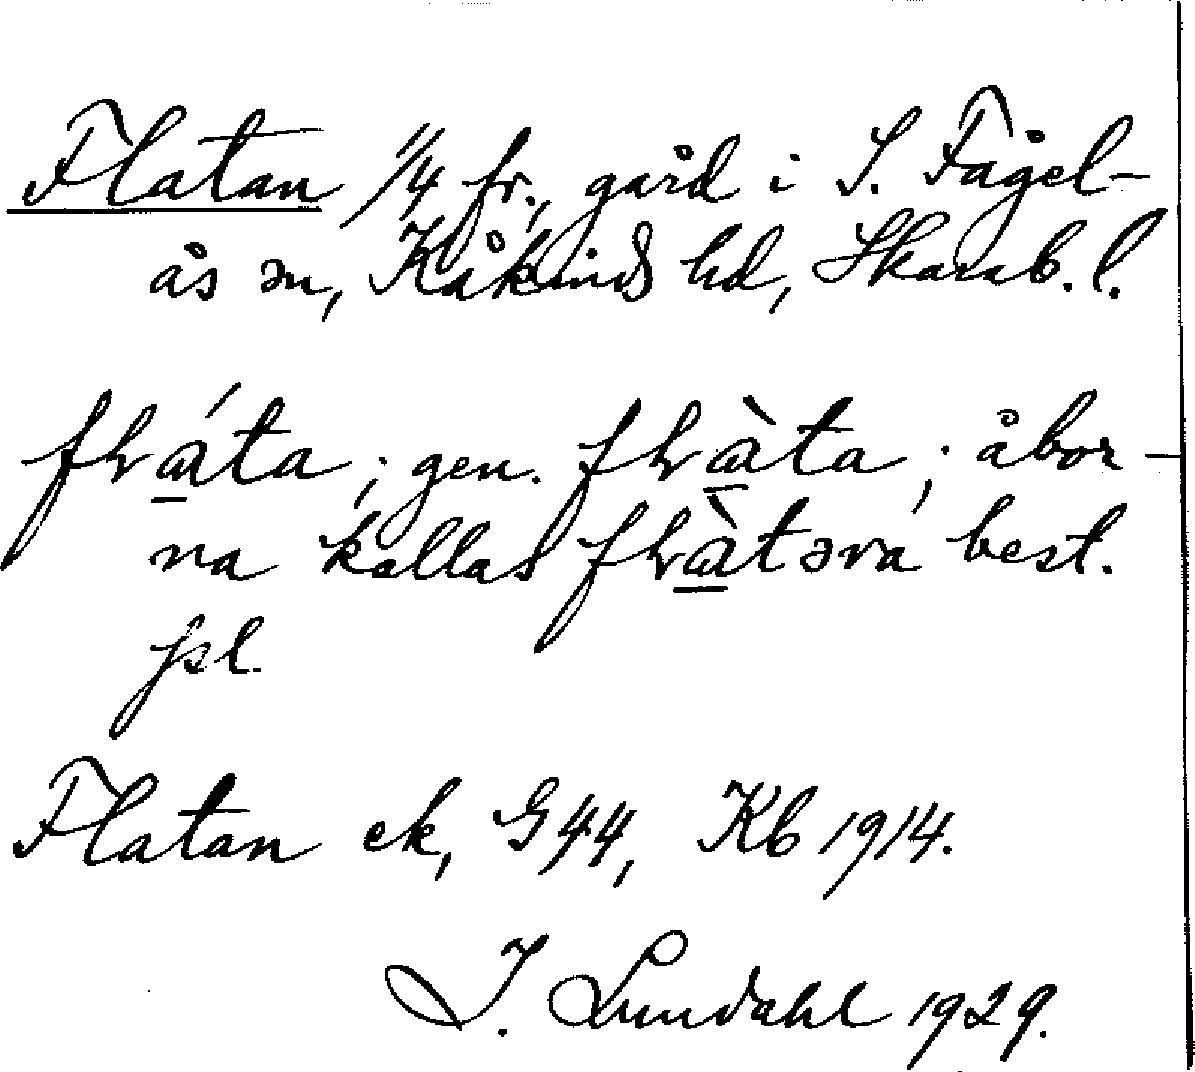 Flatan 1/4 fr., gård i S. Fågel-
ås sn, Kåkinds hd, Skarab. l.
fLɑ́ta; gen. fLɑ̀ta; åbor-
na kallas fLɑ̀təra best.
pl.
Flatan ek, G 44, Kb 1914.
I. Lundahl 1929.